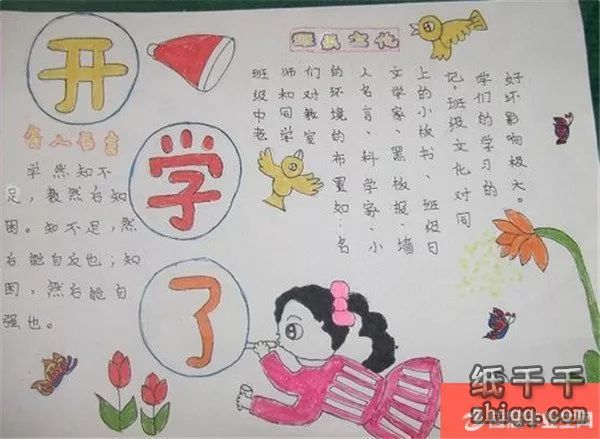 开
学
了
名人名言
学然知不
足，教然后知
困。知不足，然
后能自反也；知
困，然后能自
强也。
班级文化
班级中老
师和同学
们对教室
的环境的布置如：名
人名言、科学家、小
文学家、黑板报、墙
上的小板书、班级日
记，班级文化对同
学们的学习的
好坏影响极大。
纸千千
zhiqq.com